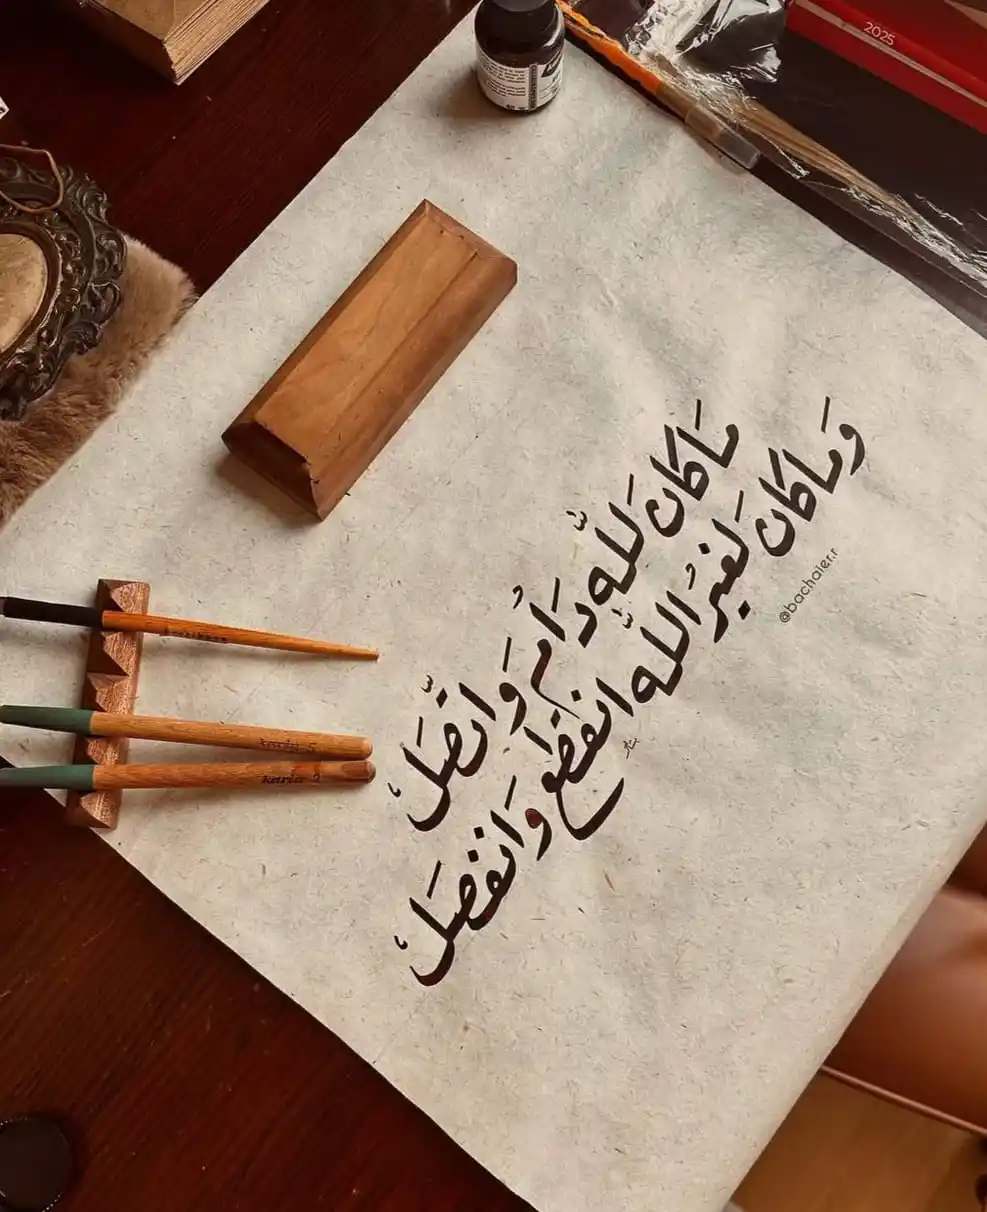 مَا كَانَ لِلّٰهِ دَامَ وَاتَّصَلَ
وَمَا كَانَ لَغيرُ اللّٰه انفطع وَانفصَلَ
@bachaier.r
2025